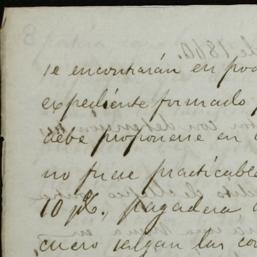 se encontrarán en pod
expediente formado p
debe proponerse en
no fuese practicable
10 p%. pagadera
cuero salgan las co